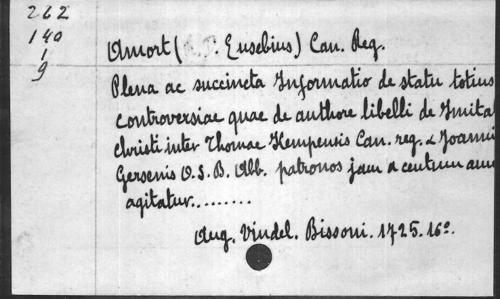 262
140
1
9
Amort ( . Eusebius) Can. Reg.
Plena ac succincta Informatio de statu totius
controversiae quae de authore libelli de Imita
Christi inter Thomae Kempensis Can. reg. & Joannis
Gersenis O.S.B. Abb. patronos jam a centum an
agitatur........
Aug. Vindel. Bissoni. 1725. 16º.